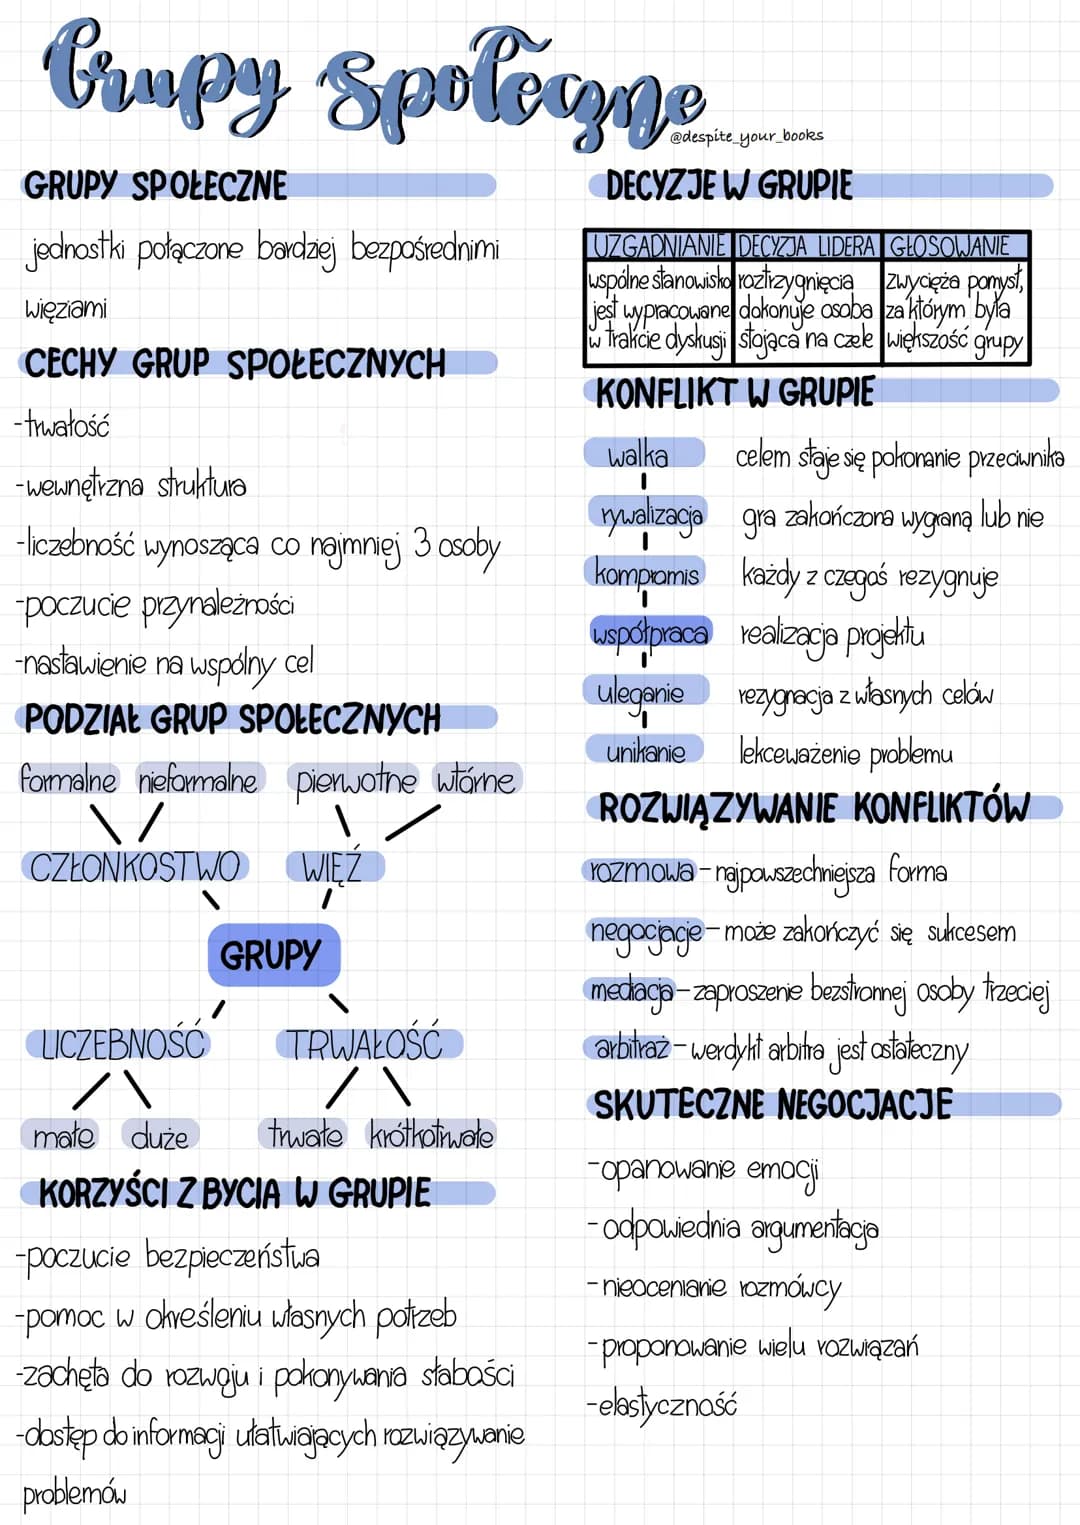 Grupy Społeczne
@despite_your_books
GRUPY SPOŁECZNE
jednostki połączone bardziej bezpośrednimi
więziami
CECHY GRUP SPOŁECZNYCH
-trwałość
-wewnętrzna struktura
-liczebność wynosząca co najmniej 3 osoby
-poczucie przynależności
-nastawienie na wspólny cel
PODZIAŁ GRUP SPOŁECZNYCH
formalne nieformalne pierwotne wtórne
CZŁONKOSTWO WIĘŹ
GRUPY
LICZEBNOŚĆ TRWAŁOŚĆ
małe duże trwałe krótkotrwałe
KORZYŚCI Z BYCIA W GRUPIE
-poczucie bezpieczeństwa
-pomoc w określeniu własnych potrzeb
-zachęta do rozwoju i pokonywania słabości
-dostęp do informacji ułatwiających rozwiązywanie
problemów
DECYZJE W GRUPIE
UZGADNIANIE DECYZJA LIDERA GŁOSOWANIE
wspólne stanowisko roztrzygnięcia zwycięża pomysł,
jest wypracowane dokonuje osoba za którym była
w trakcie dyskusji stojąca na czele większość grupy
KONFLIKT W GRUPIE
walka celem staje się pokonanie przeciwnika
rywalizacja gra zakończona wygraną lub nie
kompromis każdy z czegoś rezygnuje
współpraca realizacja projektu
uleganie rezygnacja z własnych celów
unikanie lekceważenie problemu
ROZWIĄZYWANIE KONFLIKTÓW
rozmowa - najpowszechniejsza forma
negocjacje - może zakończyć się sukcesem
mediacja - zaproszenie bezstronnej osoby trzeciej
arbitraż - werdykt arbitra jest ostateczny
SKUTECZNE NEGOCJACJE
-opanowanie emocji
-odpowiednia argumentacja
-nieocenianie rozmówcy
-proponowanie wielu rozwiązań
-elastyczność